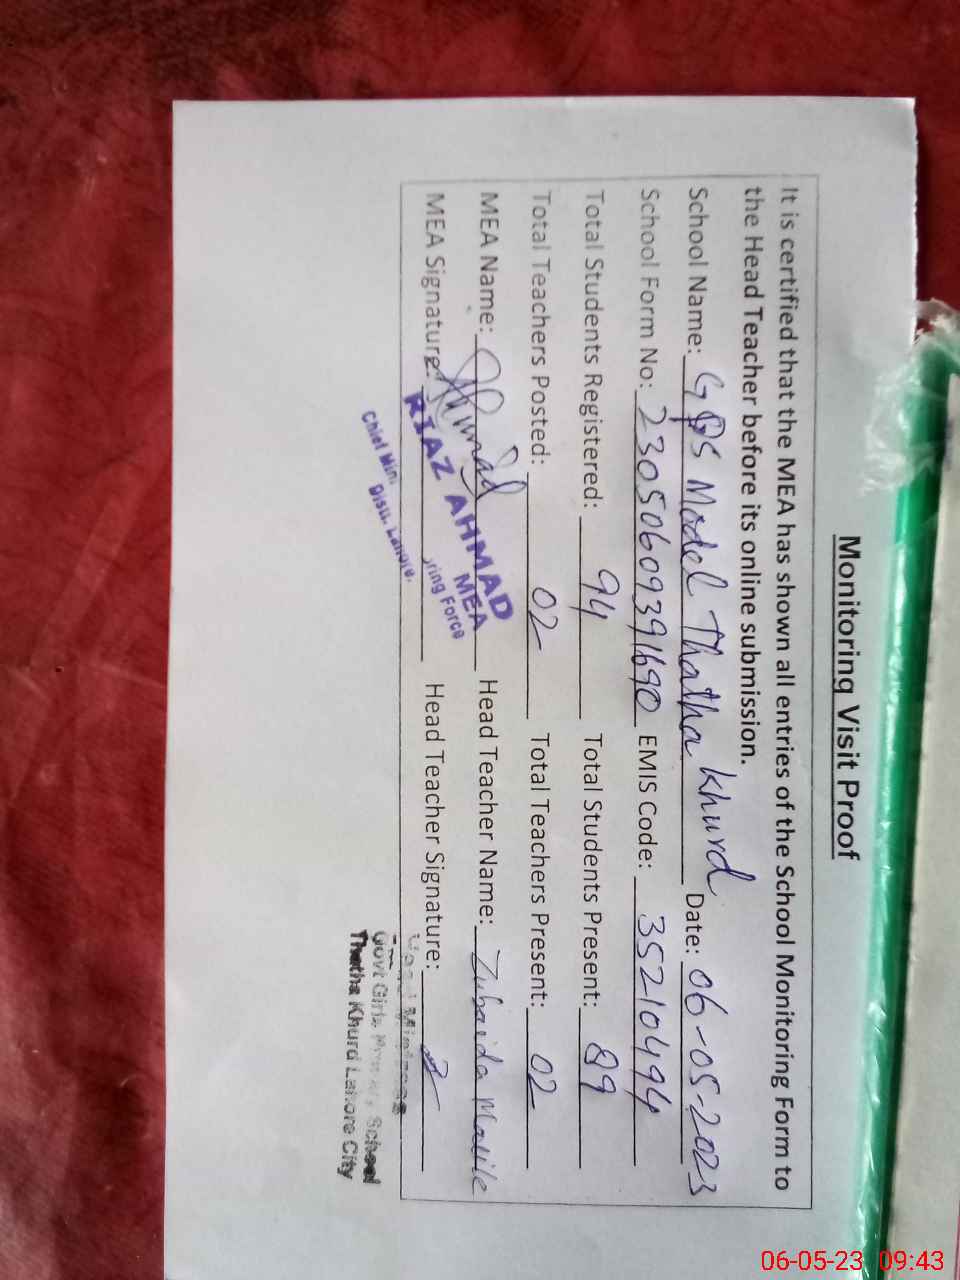 Monitoring Visit Proof
It is certified that the MEA has shown all entries of the School Monitoring Form to
the Head Teacher before its online submission.
School Name: GPS Model Thatha Khurd Date: 06-05-2023
School Form No: 23050609391690 EMIS Code: 35210494
Total Students Registered: 94 Total Students Present: 89
Total Teachers Posted: 02 Total Teachers Present: 02
MEA Name: Ahmad Head Teacher Name: Zubaida
MEA Signature: Head Teacher Signature:
RIAZ AHMAD
MEA
Chief Mini ring Force
Distt. Lahore.
Head Mistress
Govt Girls Primary School
Thatha Khurd Lahore City
06-05-23 09:43